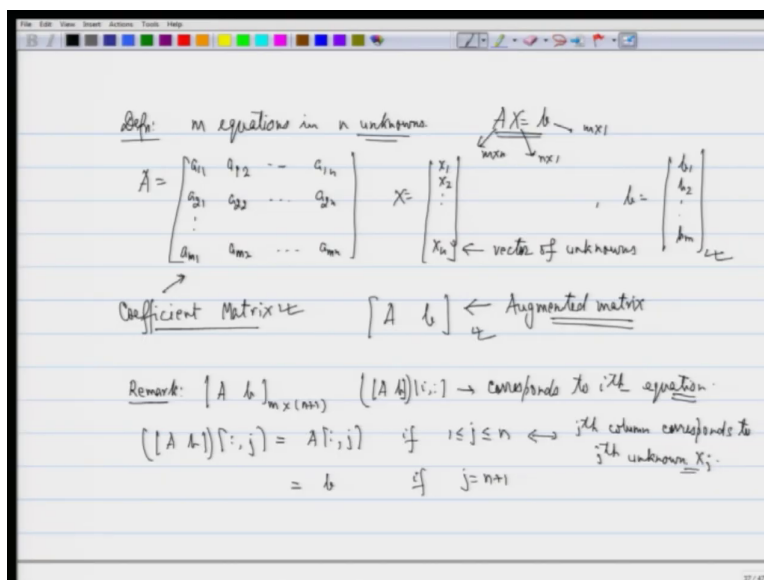 File Edit View Insert Actions Tools Help
Defn: m equations in n unknowns. AX = b → mx1
mxn nx1
A = [a11 a12 -- a1n
a21 a22 ... a2n
⋮
am1 am2 ... amn] X = [x1
x2
⋮
xn] ← vector of unknowns , b = [b1
b2
⋮
bm]
Coefficient Matrix [A b] ← Augmented matrix
Remark: [A b] m x (n+1) ([A b])[i,:] → corresponds to ith equation.
([A b])[:,j] = A[:,j] if 1≤j≤n ↔ jth column corresponds to
jth unknown xj.
= b if j=n+1